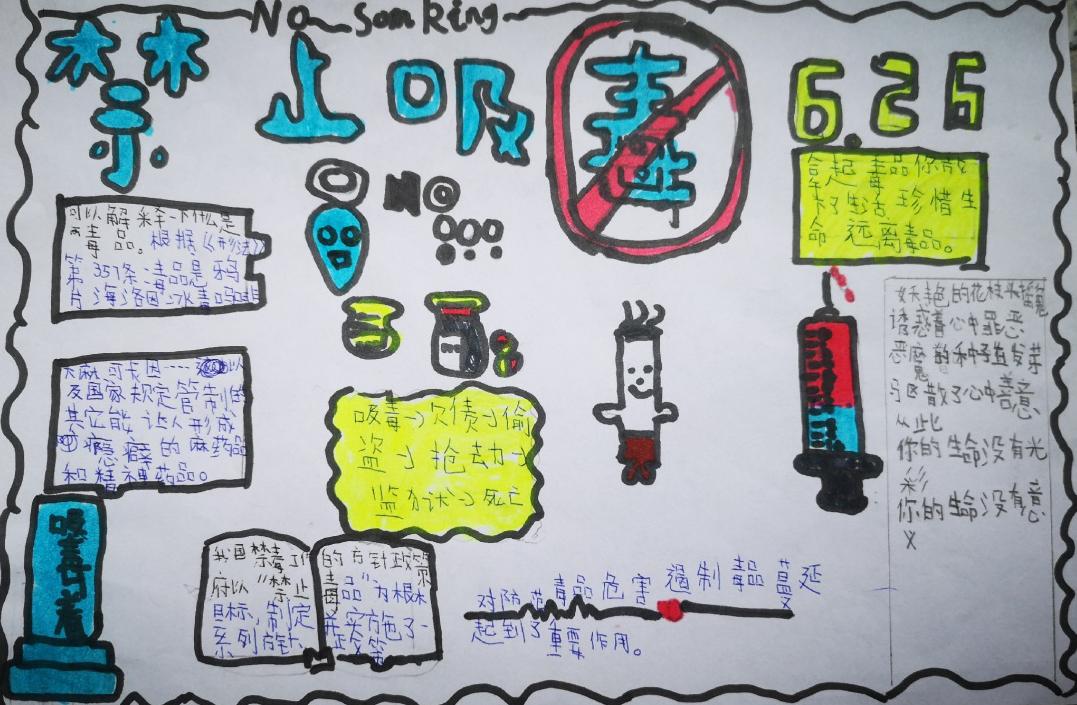 No Somking
禁止吸毒
6.26
拿起毒品你放
下了生活珍惜生
命 远离毒品。
可以解释一下什么是
毒品。根据《形法》
第357条毒品是鸦
片海洛因冰毒吗啡
大麻可卡因……以
及国家规定管制的
其它能让人形成
瘾癖的麻药品
和精神药品。
吸毒→欠债→偷
盗→抢劫→
监狱→死亡
妖艳的花枝头摇
诱惑着心中罪恶
恶魔的种子
散了心中善意
从此
你的生命没有光
彩
你的生命没有意
义
吸毒者
我国禁毒工作的方针政策
府以“禁止毒品”为根本
目标,制定并实施了一
系列方针政策
对防范毒品危害 遏制毒品蔓延
起到了重要作用。